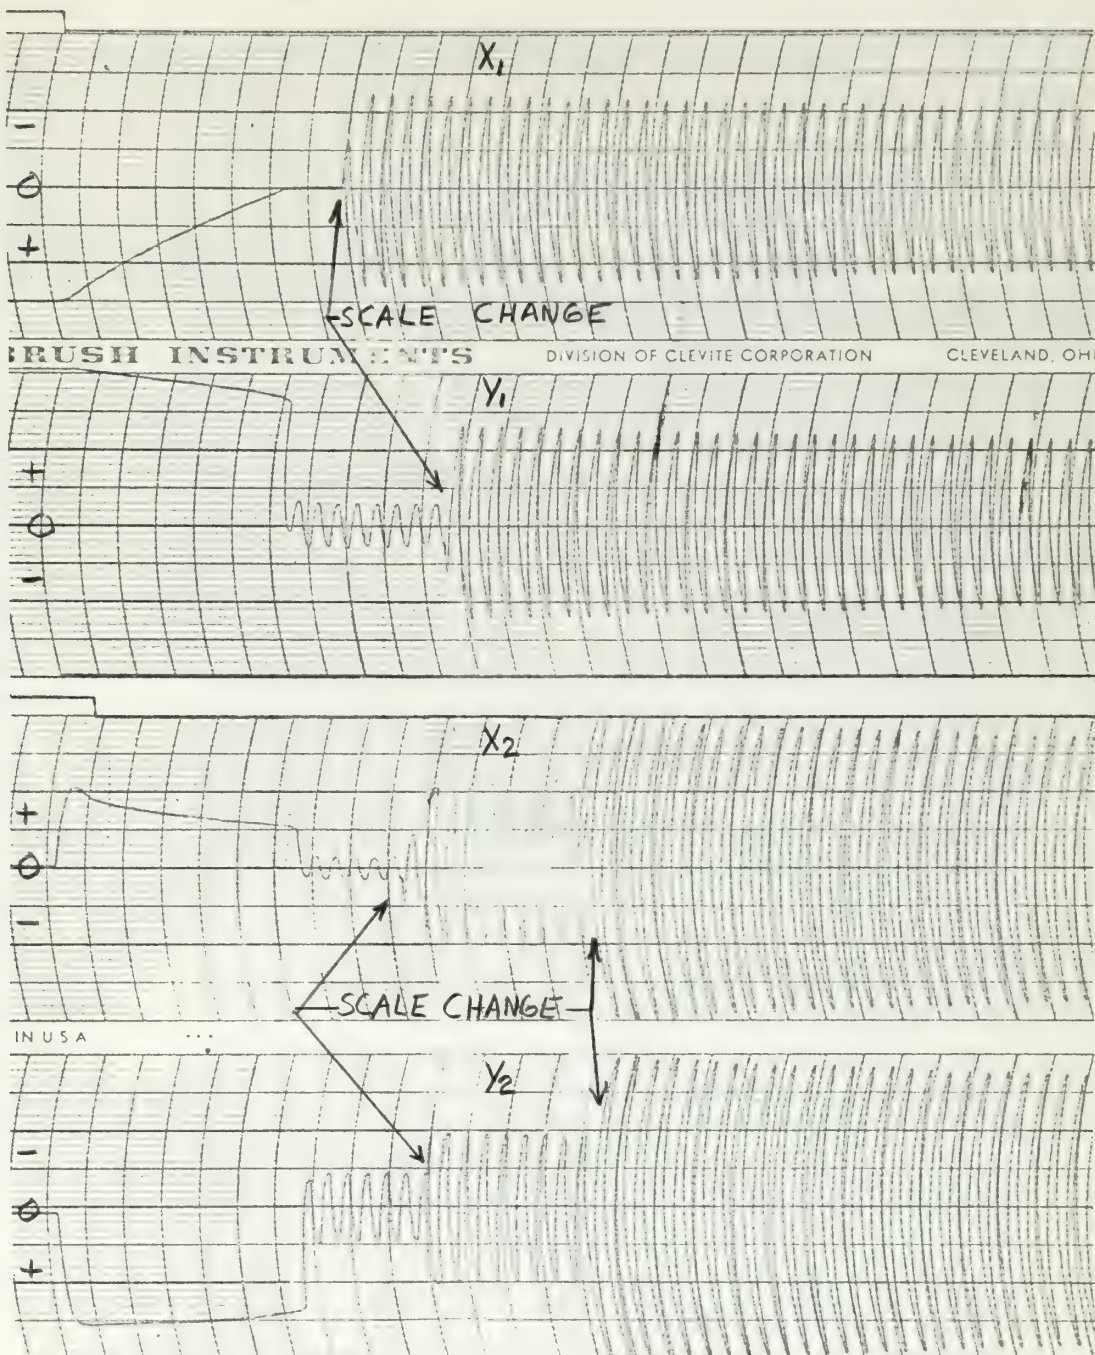 X₁
-
0
+
SCALE CHANGE
BRUSH INSTRUMENTS DIVISION OF CLEVITE CORPORATION CLEVELAND, OHI
Y₁
+
0
-
X₂
+
0
-
SCALE CHANGE
IN USA
Y₂
-
0
+